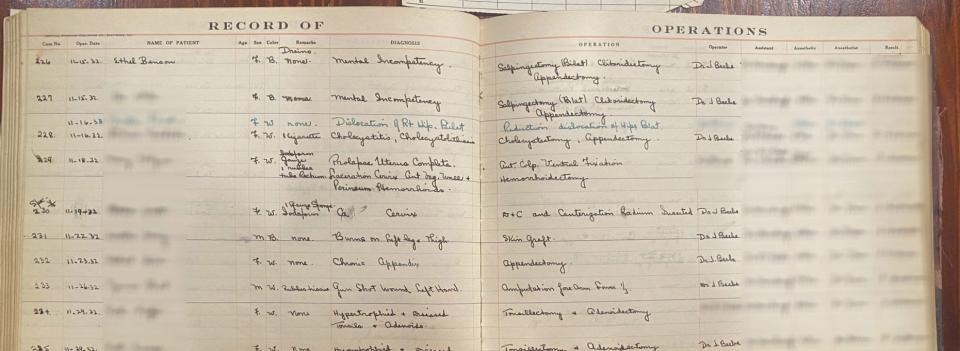 RECORD OF OPERATIONS
Case No. Oper. Date NAME OF PATIENT Age Sex Color Remarks DIAGNOSIS OPERATION Operator Assistant Anesthetic Anesthetist Result
226 11-15-32 Ethel Benson F. B. Drains. None. Mental Incompetency. Salpingectomy (Bilat) Clitoridectomy Dr J Beebe
Appendectomy.
227 11-15-32 F. B. None Mental Incompetency Salpingectomy (Bilat) Clitoridectomy
Appendectomy
11-16-32 F. W. none. Dislocation of Rt Hip. Bilat Reduction dislocation of Hips Bilat
228 11-16-32 F. W. 1 Cigarette Cholecystitis, Cholecystolithiasis Cholecystectomy, Appendectomy. Dr J Beebe
229 11-18-32 F. W. Iodoform Prolapse Uterus Complete. Ant. Colp. Ventral Fixation
Gauze 1 rubber Laceration Cervix Ant Vag. Wall + Hemorrhoidectomy.
tube Rectum Perineum Hemorrhoids.
230 11-19-32 F. W. 1 Gauze Iodoform Ca Cervix D+C and Cauterization Radium Inserted Dr J Beebe
231 11-22-32 M B. none. Burns on Left leg + Thigh Skin Graft. Dr J Beebe
232 11-23-32 F. W. None. Chronic Appendix Appendectomy. Dr J. Beebe
233 11-26-32 M W. Rubber tissue Gun Shot Wound Left Hand. Amputation fore Arm Lower ⅓ Dr J Beebe
234 11-29-32 F. W. None Hypertrophied + Diseased Tonsillectomy + Adenoidectomy
Tonsils + Adenoids.
235 11-29-32. F. W. None Hypertrophied + Diseased Tonsillectomy + Adenoidectomy Dr J Beebe